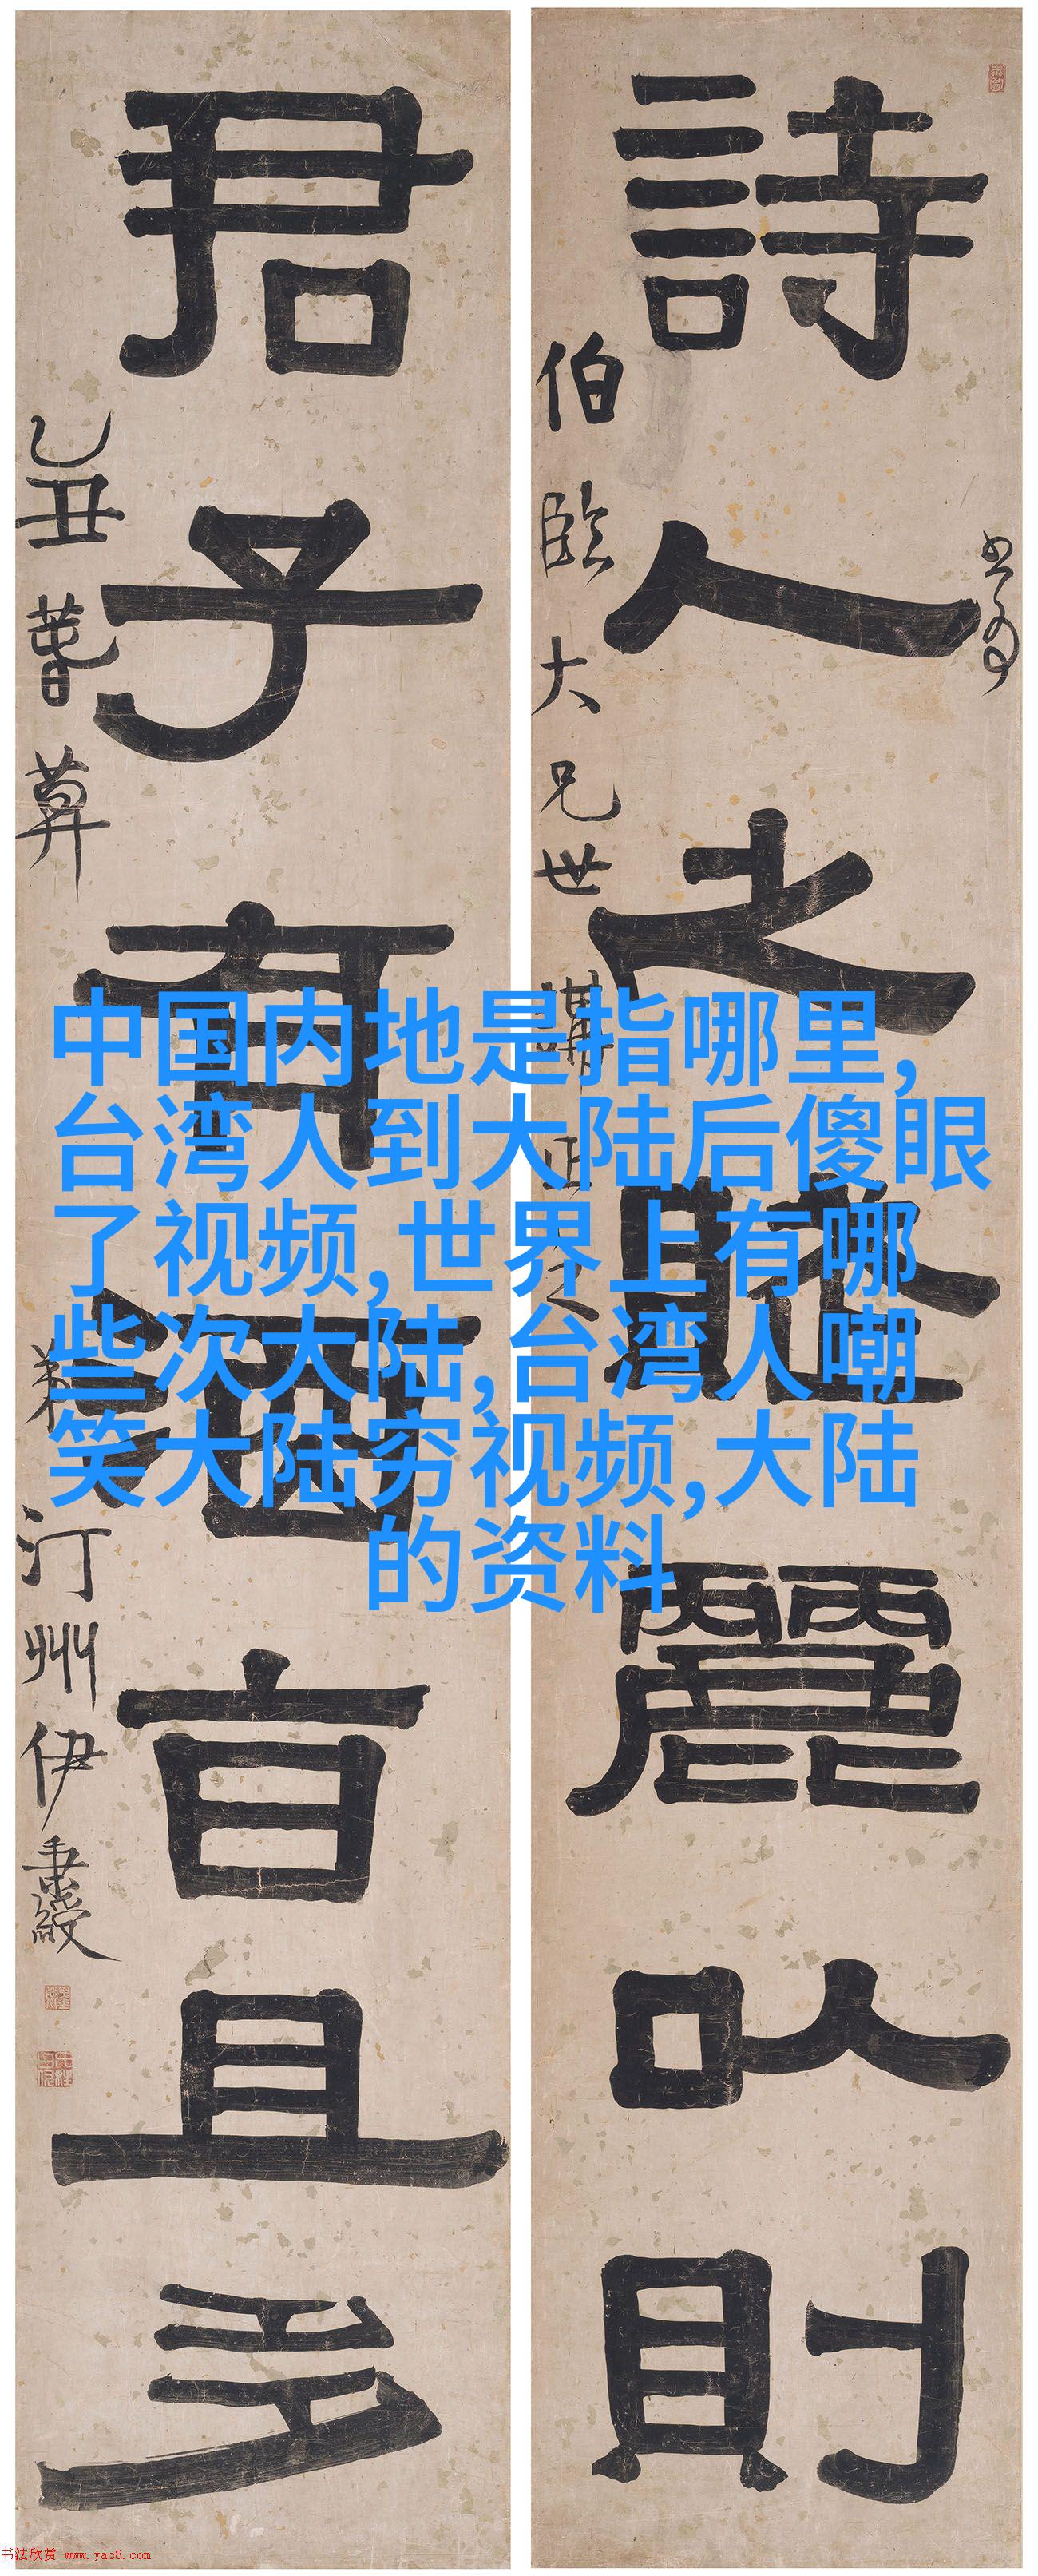 詩人之賦麗以則
伯臨大兄世講正之
君子有酒旨且多
乙丑
弟汀州伊秉綬
中国内地是指哪里,
台湾人到大陆后傻眼
了视频,世界上有哪
些次大陆,台湾人嘲
笑大陆穷视频,大陆
的资料
书法欣赏 www.yac8.com